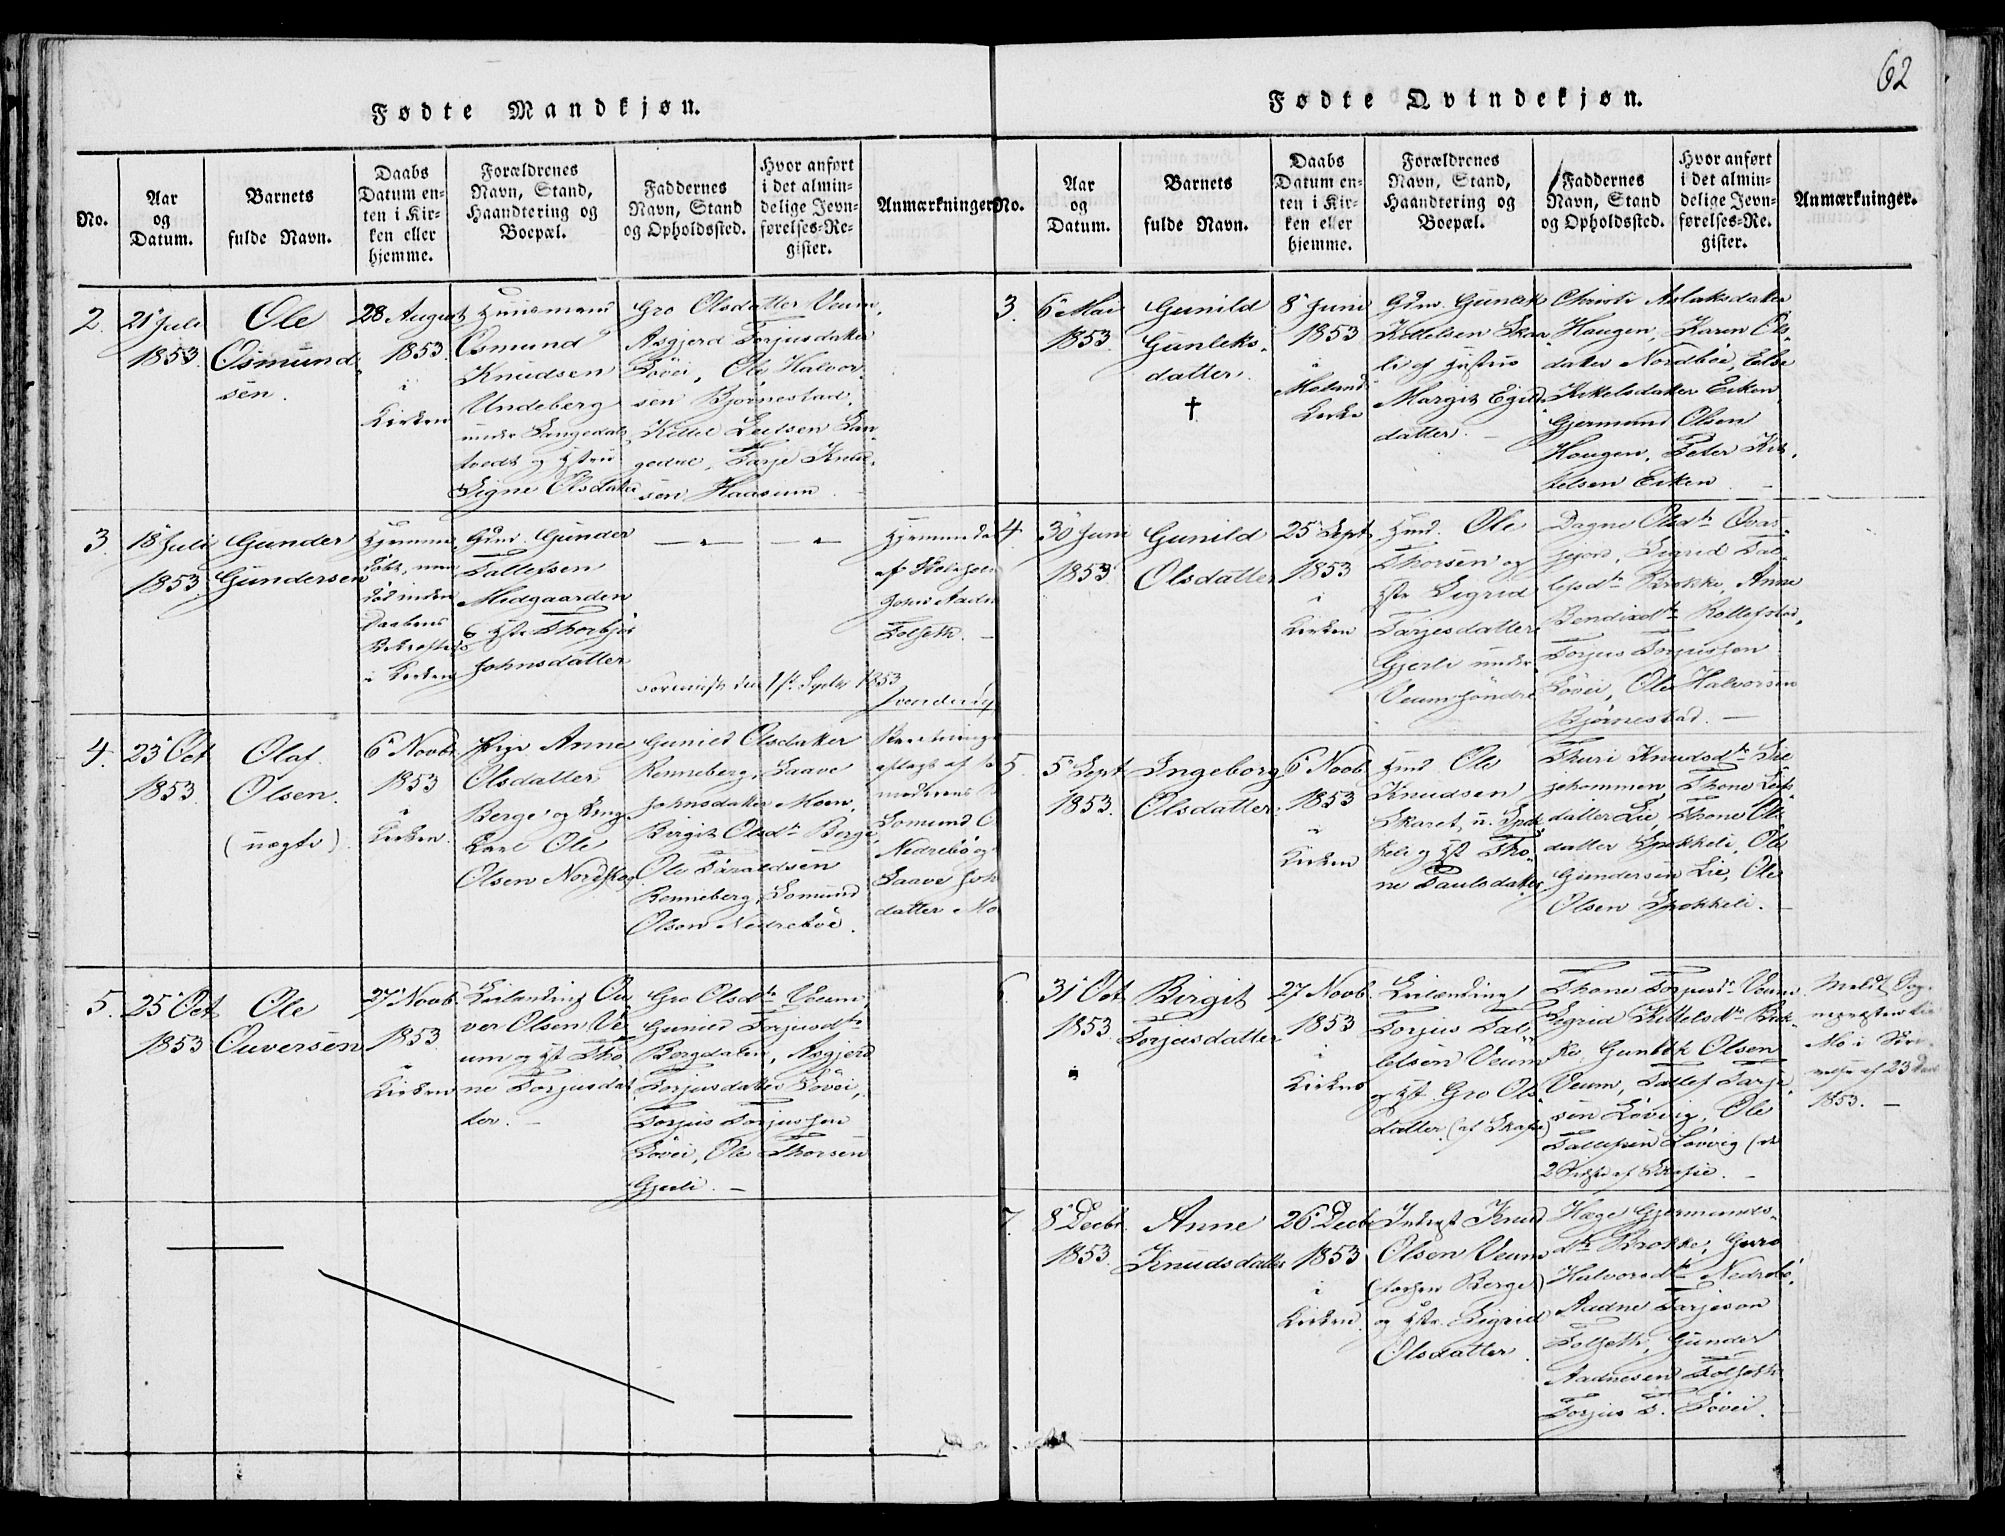 62
Fødte Mandkjøn.
No.
Aar
og
Datum.
Barnets
fulde Navn.
Daabs
Datum en-
ten i Kir-
ken eller
hjemme.
Forældrenes
Navn, Stand,
Haandtering og
Boepæl.
Faddernes
Navn, Stand
og Opholdssted.
Hvor anført
i det almin-
delige Jevn-
førelses-Re-
gister.
Anmærkninger
2.
21 Juli
1853.
Ole
Osmund
sen.
28 August
1853.
i
Kirken
Huusmand
Osmund
Knudsen
Undeberg
under Langedals
tvedt og Hstru
Signe Olsdatter
Gro Olsdatter Veum,
Asgjerd Torjusdatter
Løvei, Ole Halvor-
sen Bjørnestad,
Kittel Leifsen Lan-
gedal, Torje Knud-
sen Haasum.
3.
18 Juli
1853.
Gunder
Gundersen
Hjemme
døbt, men
død inden
Daabens
i Kirken
Gmd. Gunder
Tallefsen
Midgaarden
& Hstr Thorbjør
Johnsdatter
Hjemmeda
af
John Aadn
Folseth.
1853
4.
23 Oct
1853.
Olaf
Olsen.
(uægte)
6 Novbr
1853
i
Kirken.
Pige Anne
Olsdatter
Berge og Ung-
karl Ole
Olsen Nordskog
Gunild Olsdatter
Renneberg, Laave
Johnsdatter Moen,
Birgit Olsdtr Berge,
Ole Taraldsen
Renneberg, Somund
Olsen Nedrebøe.
moderens
Somund O
Nedrebø og
Laave Joh
datter Mo
5.
25 Oct
1853
Ole
Ouversen
27 Novb.
1853
i
Kirken
Leilending Ou
ver Olsen Ve
um og Hst Tho
ne Torjusdat
ter.
Gro Olsdtr Veum
Gunild Torjusdtr
Bergdalen, Asgjerd
Torjusdatter Løvei,
Torjus Torjussen
Løvei, Ole Thorsen
Gjerli.
Fødte Qvindekjøn.
No.
Aar
og
Datum.
Barnets
fulde Navn.
Daabs
Datum en-
ten i Kir-
ken eller
hjemme.
Forældrenes
Navn, Stand,
Haandtering og
Boepæl.
Faddernes
Navn, Stand
og Opholdssted.
Hvor anført
i det almin-
delige Jevn-
førelses-Re-
gister.
Anmærkninger.
3.
6 Mai
1853.
Gunild
Gunleks-
datter.
†
8 Juni
1853
i
Moland
Kirke
Gdm. Gunlek
Kittelsen Skaa
li og Hustru
Margit Egilds
datter.
Christi Aslaksdatter
Haugen, Karen Ols-
datter Nordbøe, Else
Kittelsdatter Eiken
Gjermund Olsen
Haugen, Peter Kit-
telsen Eiken.
4.
30 Juni
1853
Gunild
Olsdatter
25 Sept
1853
i
Kirken
Hmd. Ole
Thorsen og
Hstr Sigrid
Tarjesdatter
Gjerli under
Veum søndre
Dagne Olsdtr Qvas-
fjord, Sigrid Tal-
lefsdtr Brokke, Anne
Bendixdtr Rollefstad,
Torjus Torjussen
Løvei, Ole Halvorsen
Bjørnestad.
5.
5 Sept
1853.
Ingeborg
Olsdatter.
6 Novb
1853
i
Kirken
Hmd Ole
Knudsen
Skaret, u. Spok
keli og Hst Tho-
ne Paulsdatter
Thuri Knudsdtr Lie
hjemmen, Thone Leifs-
datter Lie, Thone Ols
datter Spokkeli, Ole
Gundersen Lie, Ole
Olsen Spokkeli.
6
31 Oct
1853
Birgit
Torjusdatter
27 Novb.
1853
i
Kirken
Leilending
Torjus Tal-
lefsen Veum
og Hst. Gro Ols
datter. (af Skafse)
Thone Torjusdtr Veum
Sigrid Kittelsdtr Brok-
ke, Gunlek Olsen
Veum, Tallef Tarje
sen Løverig, Ole
Tallefsen Løverig (de
2 sidste af Skafse.
Meldt Sog-
nepræsten
Mo i
af 23
1853.
7.
8 Decbr
1853.
Anne
Knudsdatter
26 Decb.
1853
i
Kirken.
Inderst Knud
Olsen Veum
(forhen Berge)
og Hstr. Sigrid
Olsdatter.
Hæge Gjermunds-
dtr Brokke, Gurro
Halvorsdtr Nedrebø,
Aadne Tarjeson
Folseth, Gunder
Aadnesen Folseth
Torjus T. Løvei.